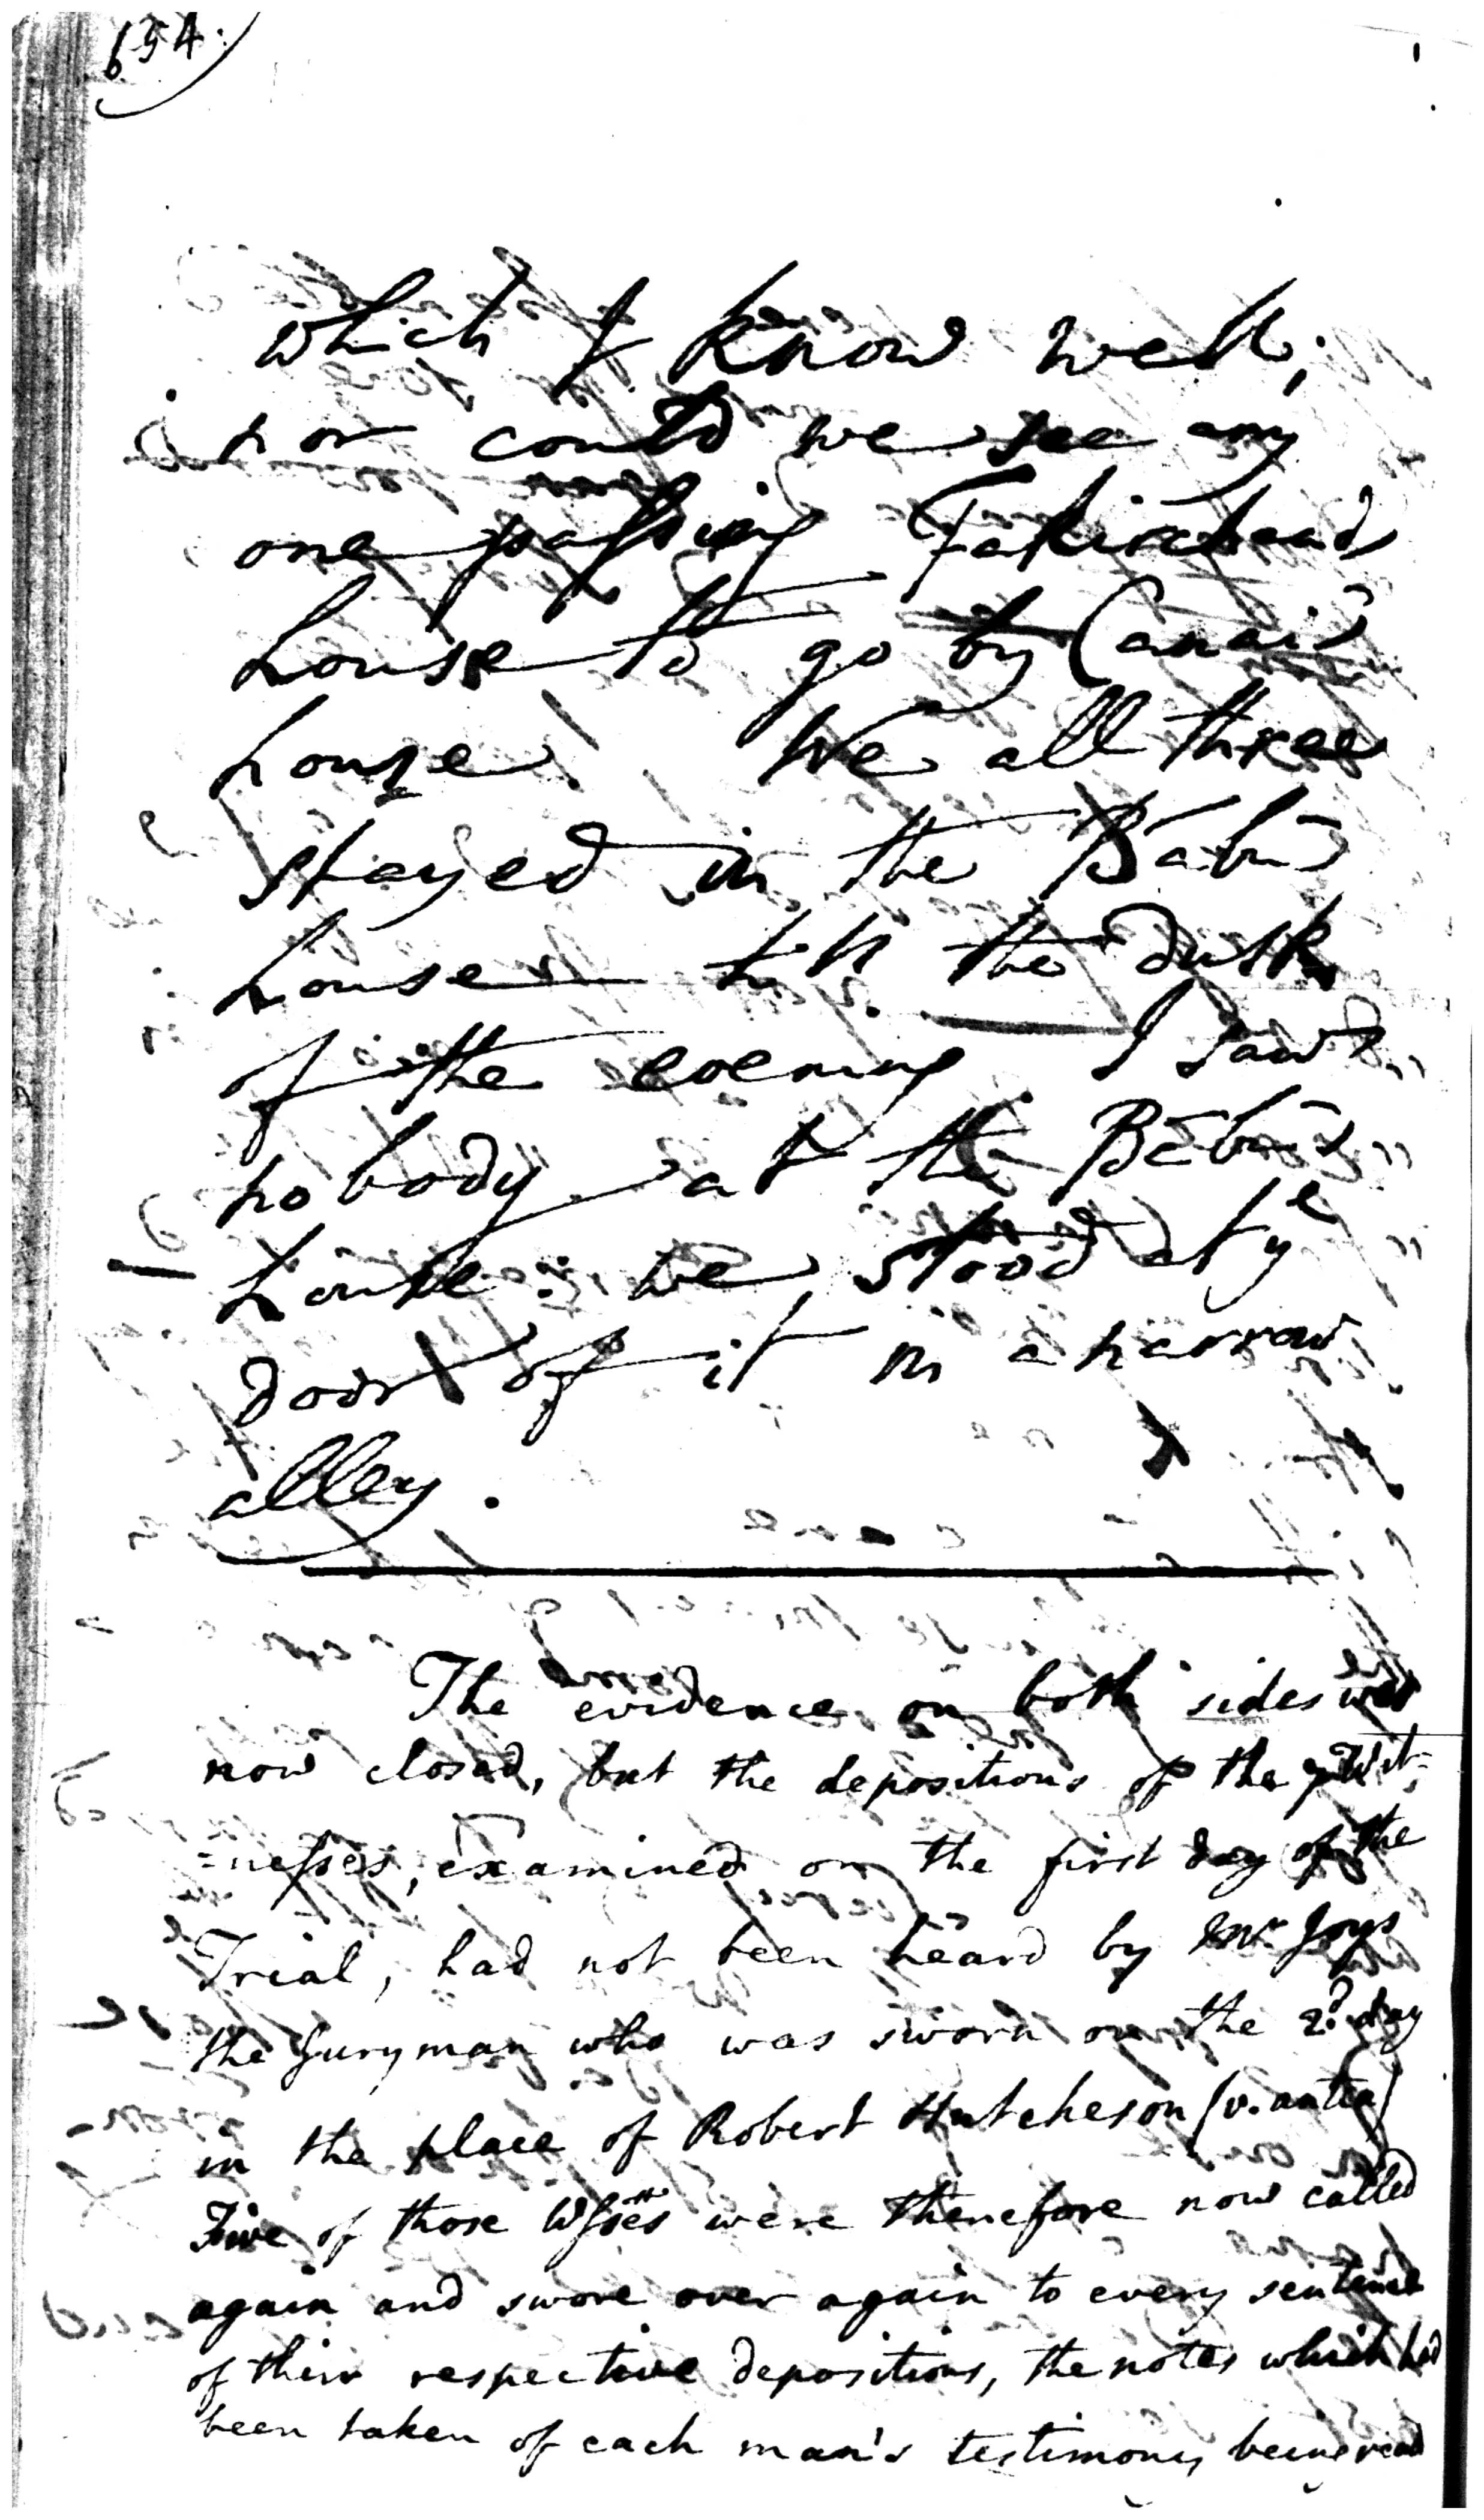 654.
which I know well;
nor could we see any
one passing Fakirchand
house to go by Canai's
house. We all three
stayed in the Bābu's
house till the dusk
of the evening. I saw
nobody at the Bābu's
house: we stood at yᵉ
door of it in a narrow
alley.
The evidence on both sides was
now closed, but the depositions of the Wit-
=nesses, examined on the first day of the
Trial, had not been heard by Mr Joys
the Juryman who was sworn on the 2d day
in the place of Robert Hutcheson (v. antea)
Five of those Wsses were therefore now called
again and swore over again to every sentence
of their respective depositions, the notes which had
been taken of each man's testimony being read